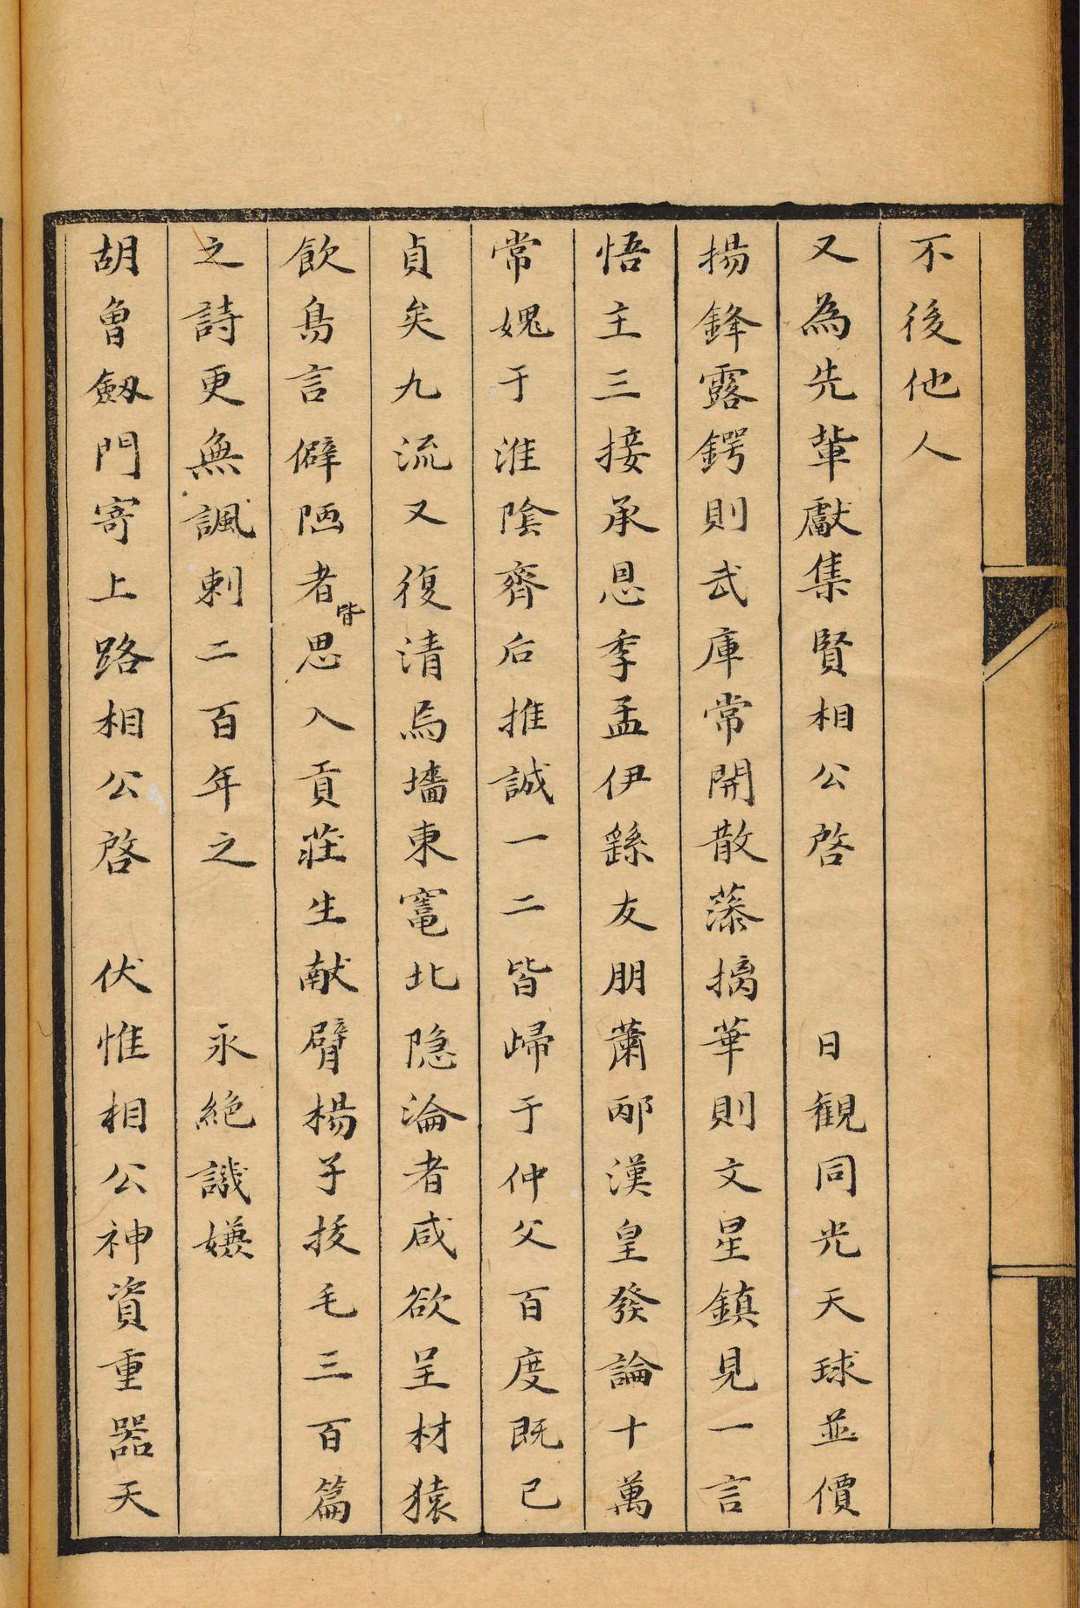 不後他人
又為先輩獻集賢相公啓　日觀同光天球並價
揚鋒露鍔則武庫常開散藻摛華則文星鎮見一言
悟主三接承恩季孟伊繇友朋蕭邴漢皇發論十萬
常媿于淮陰齊后推誠一二皆歸于仲父百度既已
貞矣九流又復清焉墻東竃北隐淪者咸欲呈材猿
飲鳥言僻陋者皆思入貢莊生献臂楊子拔毛三百篇
之詩更無諷刺二百年之　永絶譏嫌
胡曾劔門寄上路相公啓　伏惟相公神資重器天